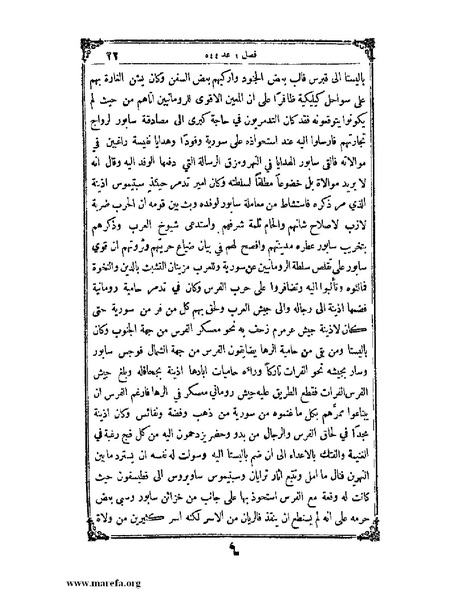 فصل ١ عد ٥٤٤ ٢٢
باليستا الى قبرس فالب بعض الجنود واركبهم بعض السفن وكان يشن الغارة بهم
على سواحل كيليكية ظافرًا على ان المعين الاقوى للرومانيين اتاهم من حيث لم
يكونوا يتوقعونه فقد كان التدمريون في حاجة كبرى الى مصادقة سابور لرواج
تجارتهم فارسلوا اليه عند استحواذه على سورية وفودًا وهدايا نفيسة راغبين في
موالاته فالقى سابور الهدايا في النهر ومزق الرسالة التي دفعها الوفد اليه وقال انه
لا يريد موالاة بل خضوعًا مطلقًا لسلطته وكان امير تدمر حينئذ سبتيموس اذينة
الذي مر ذكره فاستشاط من معاملة سابور لوفده وبث بين قومه ان الحرب ضربة
لازب لاصلاح شانهم والحام ثلمة شرفهم واستدعى شيوخ العرب وذكرهم
بتخريب سابور عطره مدينتهم وافصح لهم في بيان ضياع حريتهم وثروتهم ان قوي
سابور على تقلص سلطة الرومانيين عن سورية وللعرب مزيتان التشبث بالدين والنخوة
فالبوه وتألبوا اليه وتضافروا على حرب الفرس وكان في تدمر حامية رومانية
فضمها اذينة الى رجاله والى جيش العرب ولحق بهم كل من فر من سورية حتى
كان لاذينة جيش عرمرم زحف به نحو معسكر الفرس من جهة الجنوب وكان
باليستا ومن بقي من حامية الرها يضايقون الفرس من جهة الشمال فوجس سابور
وسار بجيشه نحو الفرات تاركًا وراءه حاميات ابادها اذينة بجحافله وبلغ جيش
الفرس الفرات فقطع الطريق عليه جيش روماني معسكر في الرها فارغم الفرس ان
يبتاعوا ممرهم بكل ما غنموه من سورية من ذهب وفضة ونفائس وكان اذينة
مجدًا في لحاق الفرس والرجال من بدو وحضر يزدحمون اليه من كل فج رغبة في
الغنيمة والفتك بالاعداء الى ان ضم باليستا اليه وسولت له نفسه ان يسترد ما بين
النهرين فنال ما امل وتتبع اثار ترايان وسبتيموس ساويروس الى قطيسفون حيث
كانت له وقعة مع الفرس استحوذ بها على جانب من خزائن سابور وسبى بعض
حرمه على انه لم يستطع ان ينقذ فالريان من الاسر لكنه اسر كثيرين من ولاة
www.marefa.org